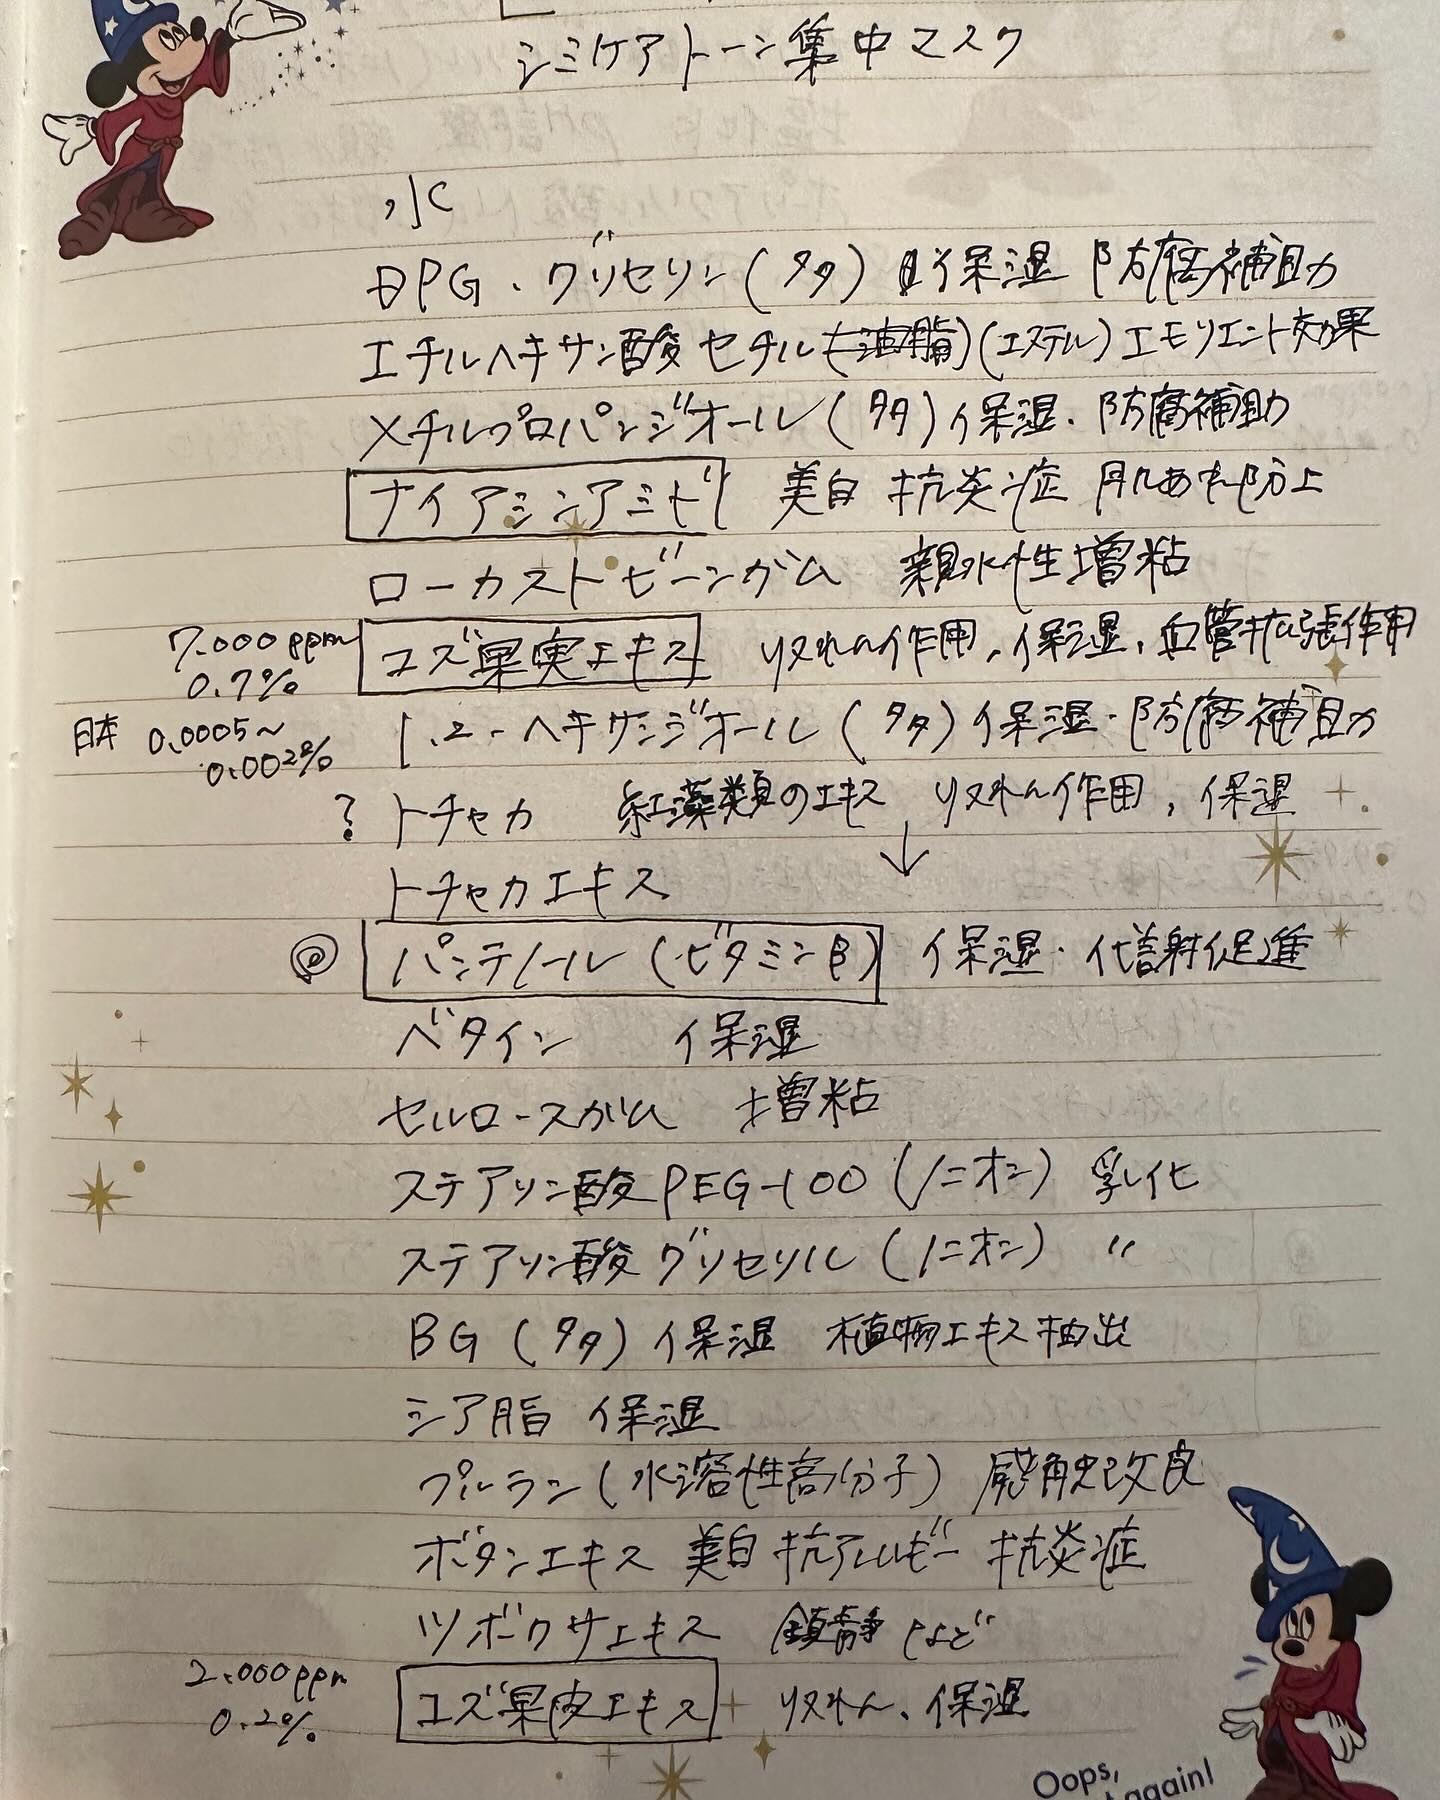 シミケアトーン集中マスク
水
DPG、グリセリン(多タ) 保湿 防腐補助力
エチルヘキサン酸セチル(油脂)(エステル)エモリエント効果
メチルプロパンジオール(多タ)保湿・防腐補助
ナイアシンアミド 美白 抗炎症 肌あれ防止
ローカストビーンガム 親水性増粘
7.000ppm
0.7%
ユズ果実エキス 収れん作用、保湿、血管拡張作用
日本 0.0005~
0.002%
1.2-ヘキサンジオール(多タ)保湿・防腐補助力
? トチャカ 紅藻類のエキス 収れん作用、保湿
↓
トチャカエキス
パンテノール(ビタミンB) 保湿・代謝促進
ベタイン 保湿
セルロースガム 増粘
ステアリン酸PEG-100(ノニオン) 乳化
ステアリン酸グリセリル(ノニオン) 〃
BG(多タ)保湿 植物エキス抽出
シア脂 保湿
プルラン(水溶性高分子) 感触改良
ボタンエキス 美白 抗アレルギー 抗炎症
ツボクサエキス 鎮静など
2.000ppm
0.2%
ユズ果皮エキス 収れん、保湿
Oops,
again!